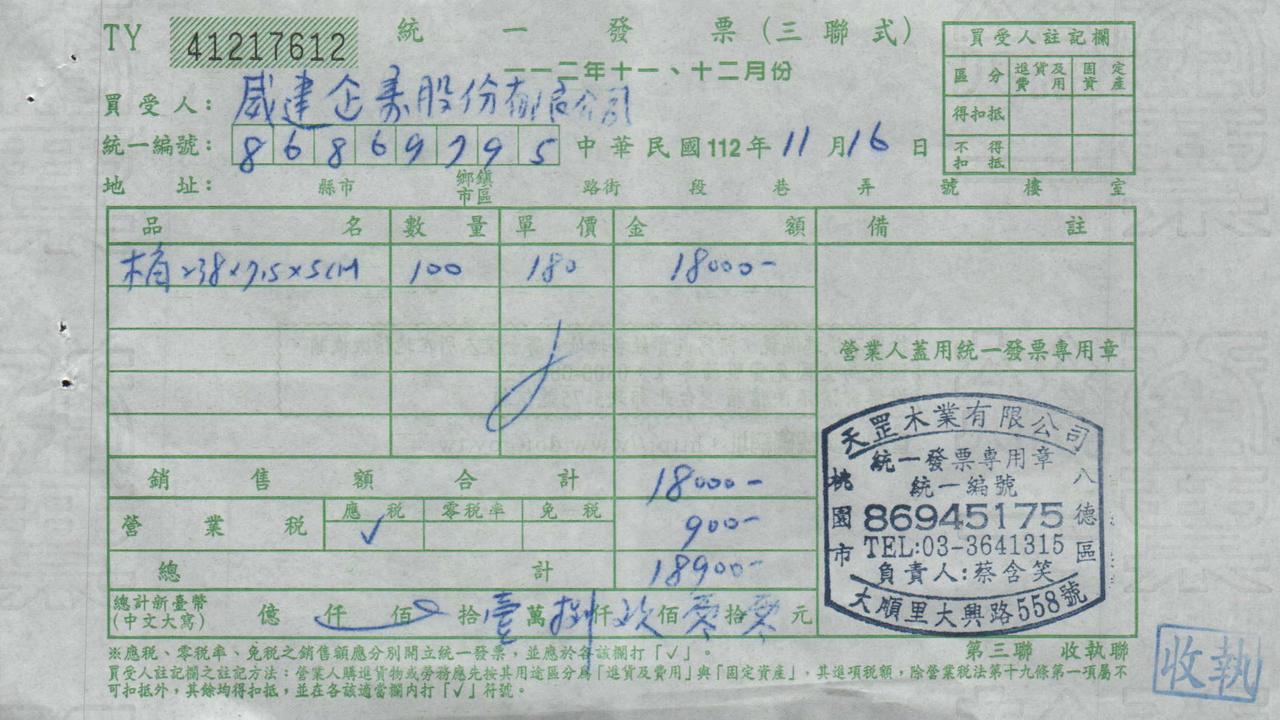 TY 41217612 統一發票(三聯式)
一一二年十一、十二月份
買受人註記欄
區分 進貨及費用 固定資產
得扣抵
不得扣抵
買受人: 威建企業股份有限公司
統一編號: 86869795 中華民國112年11月16日
地址: 縣市 鄉鎮市區 路街 段 巷 弄 號 樓 室
品名 數量 單價 金額 備註
100 180 18000-
營業人蓋用統一發票專用章
銷售額合計 18000-
營業稅 應稅 零稅率 免稅
✓ 900-
總計 18900-
總計新臺幣(中文大寫) 億 仟 佰 拾 壹 萬 捌 仟 玖 佰 零 拾 零 元
天罡木業有限公司
統一發票專用章
統一編號
86945175
TEL:03-3641315
負責人:蔡含笑
桃園市 八德區
大順里大興路558號
※應稅、零稅率、免稅之銷售額應分別開立統一發票,並應於各該欄打「✓」。
第三聯 收執聯
買受人註記欄之註記方法:營業人購進貨物或勞務應先按其用途區分為「進貨及費用」與「固定資產」,其進項稅額,除營業稅法第十九條第一項屬不
可扣抵外,其餘均得扣抵,並在各該適當欄內打「✓」符號。
收執